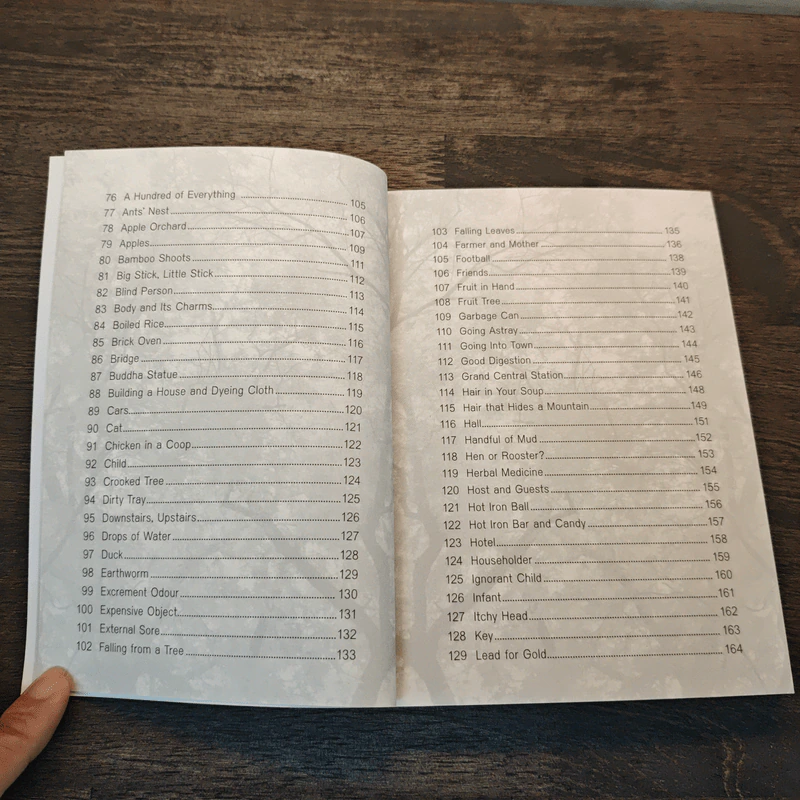 76 A Hundred of Everything ........ 105
77 Ants' Nest ........ 106
78 Apple Orchard ........ 107
79 Apples ........ 109
80 Bamboo Shoots ........ 111
81 Big Stick, Little Stick ........ 112
82 Blind Person ........ 113
83 Body and Its Charms ........ 114
84 Boiled Rice ........ 115
85 Brick Oven ........ 116
86 Bridge ........ 117
87 Buddha Statue ........ 118
88 Building a House and Dyeing Cloth ........ 119
89 Cars ........ 120
90 Cat ........ 121
91 Chicken in a Coop ........ 122
92 Child ........ 123
93 Crooked Tree ........ 124
94 Dirty Tray ........ 125
95 Downstairs, Upstairs ........ 126
96 Drops of Water ........ 127
97 Duck ........ 128
98 Earthworm ........ 129
99 Excrement Odour ........ 130
100 Expensive Object ........ 131
101 External Sore ........ 132
102 Falling from a Tree ........ 133
103 Falling Leaves ........ 135
104 Farmer and Mother ........ 136
105 Football ........ 138
106 Friends ........ 139
107 Fruit in Hand ........ 140
108 Fruit Tree ........ 141
109 Garbage Can ........ 142
110 Going Astray ........ 143
111 Going Into Town ........ 144
112 Good Digestion ........ 145
113 Grand Central Station ........ 146
114 Hair in Your Soup ........ 148
115 Hair that Hides a Mountain ........ 149
116 Hall ........ 151
117 Handful of Mud ........ 152
118 Hen or Rooster? ........ 153
119 Herbal Medicine ........ 154
120 Host and Guests ........ 155
121 Hot Iron Ball ........ 156
122 Hot Iron Bar and Candy ........ 157
123 Hotel ........ 158
124 Householder ........ 159
125 Ignorant Child ........ 160
126 Infant ........ 161
127 Itchy Head ........ 162
128 Key ........ 163
129 Lead for Gold ........ 164